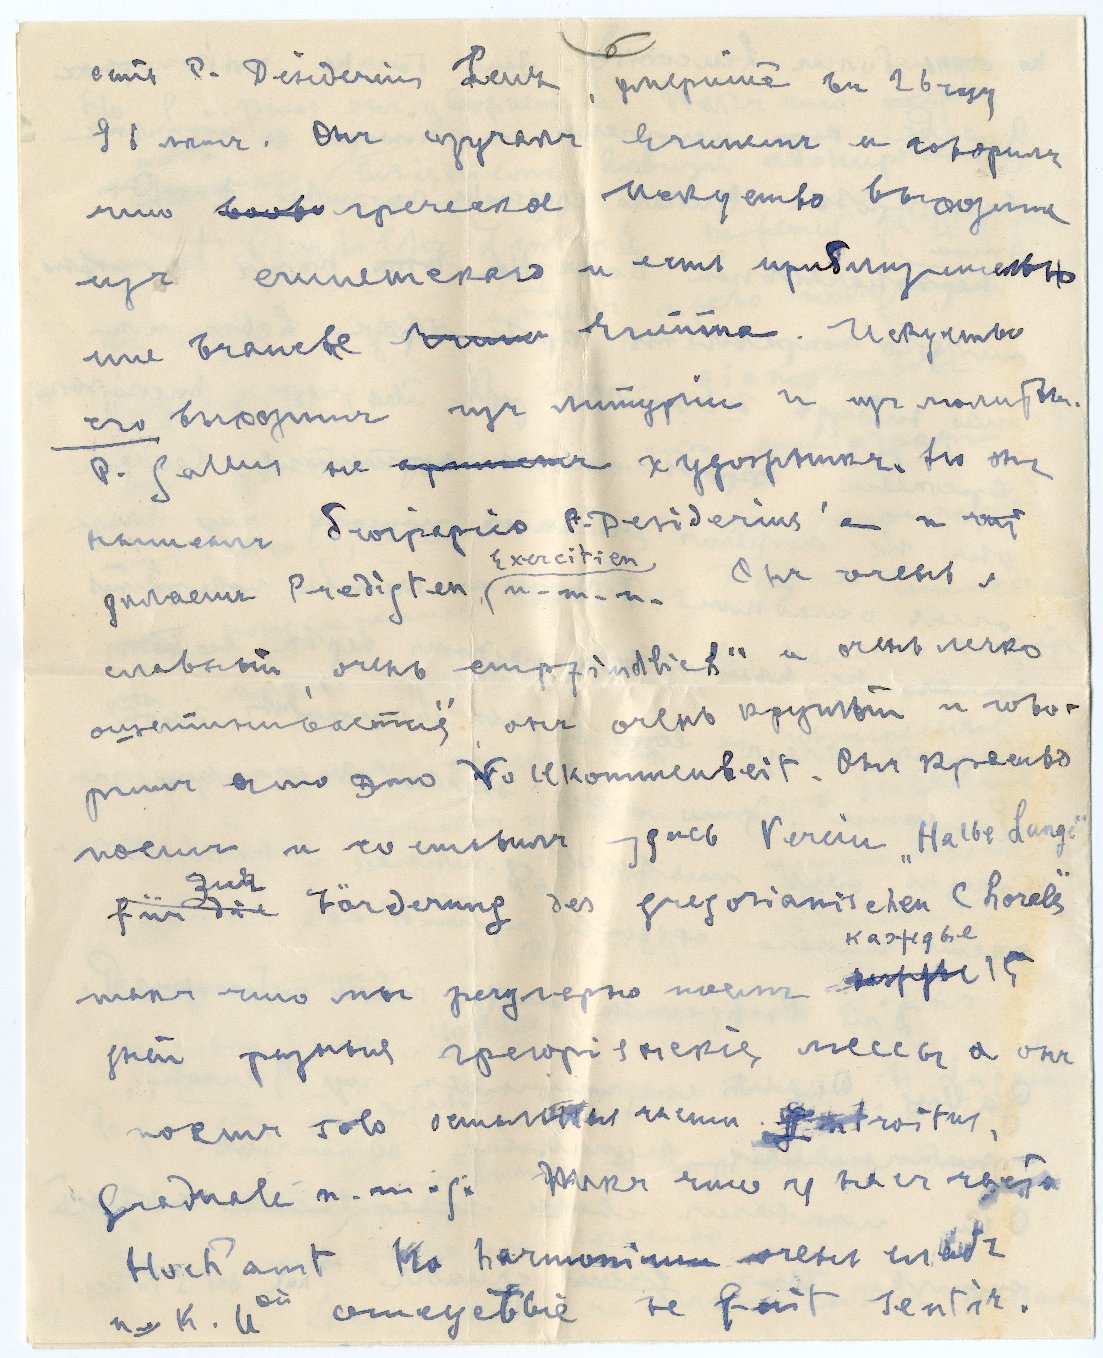 есть P. Desiderius Lenz, умершiй въ 26 году
91 летъ. Онъ изучалъ Египетъ и говорилъ
что греческое Искуство выходитъ
изъ египетскаго и есть приблизительно
Египта. Искуство
его выходитъ изъ литургiи и изъ молитвы.
P. Gallus не художникъ. Но онъ
написалъ бiографiю P. Desiderius'a и
делаетъ Predigten, Exercitien и-т-п. Онъ очень
славный, очень „empfindlich“ и очень легко
„ощетинивается“, онъ очень круглый и гово-
ритъ что это Vollkommenheit. Онъ красиво
поетъ и составилъ здесь Verein „Halbe Lunge“
zur Förderung des gregorianischen Chorals
такъ что мы регулерно поемъ каждые 15
дней разныя грегорiанскiя мессы а онъ
поетъ solo остальныя части Introitus,
Graduale и-т-д. Такъ что у насъ часто
Hochamt. Но harmonium очень слабъ
и К. Ц ой отсуствiе не fait sentir.